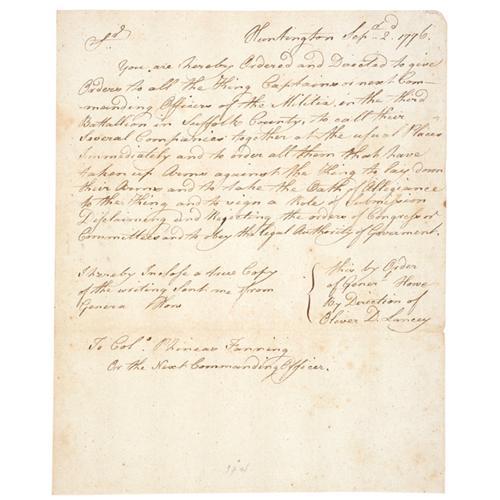 Sr Huntington Sepr 2d 1776.
You are hereby Ordered and Directed to give
Orders to all the King Captains or next Com-
manding Officers of the Militia, in the third
Battallion in Suffolk County, to call their
Several Companies together at the usual Places
Immediately and to order all them that have
taken up Arms against the King to lay down
their Arms and to take the Oath of Allegiance
to the King and to sign a Role of Submission
Disclaiming and Rejecting the orders of Congress or
Committees and to obey the legal Authority of Goverment.
I hereby Inclose a true Copy
of the writing Sent me from
Genera How
this by Order
of Generl Howe
By Direction of
Oliver D. Lancey
To Colo. Phineas Fanning
Or the Next Commanding Officer.